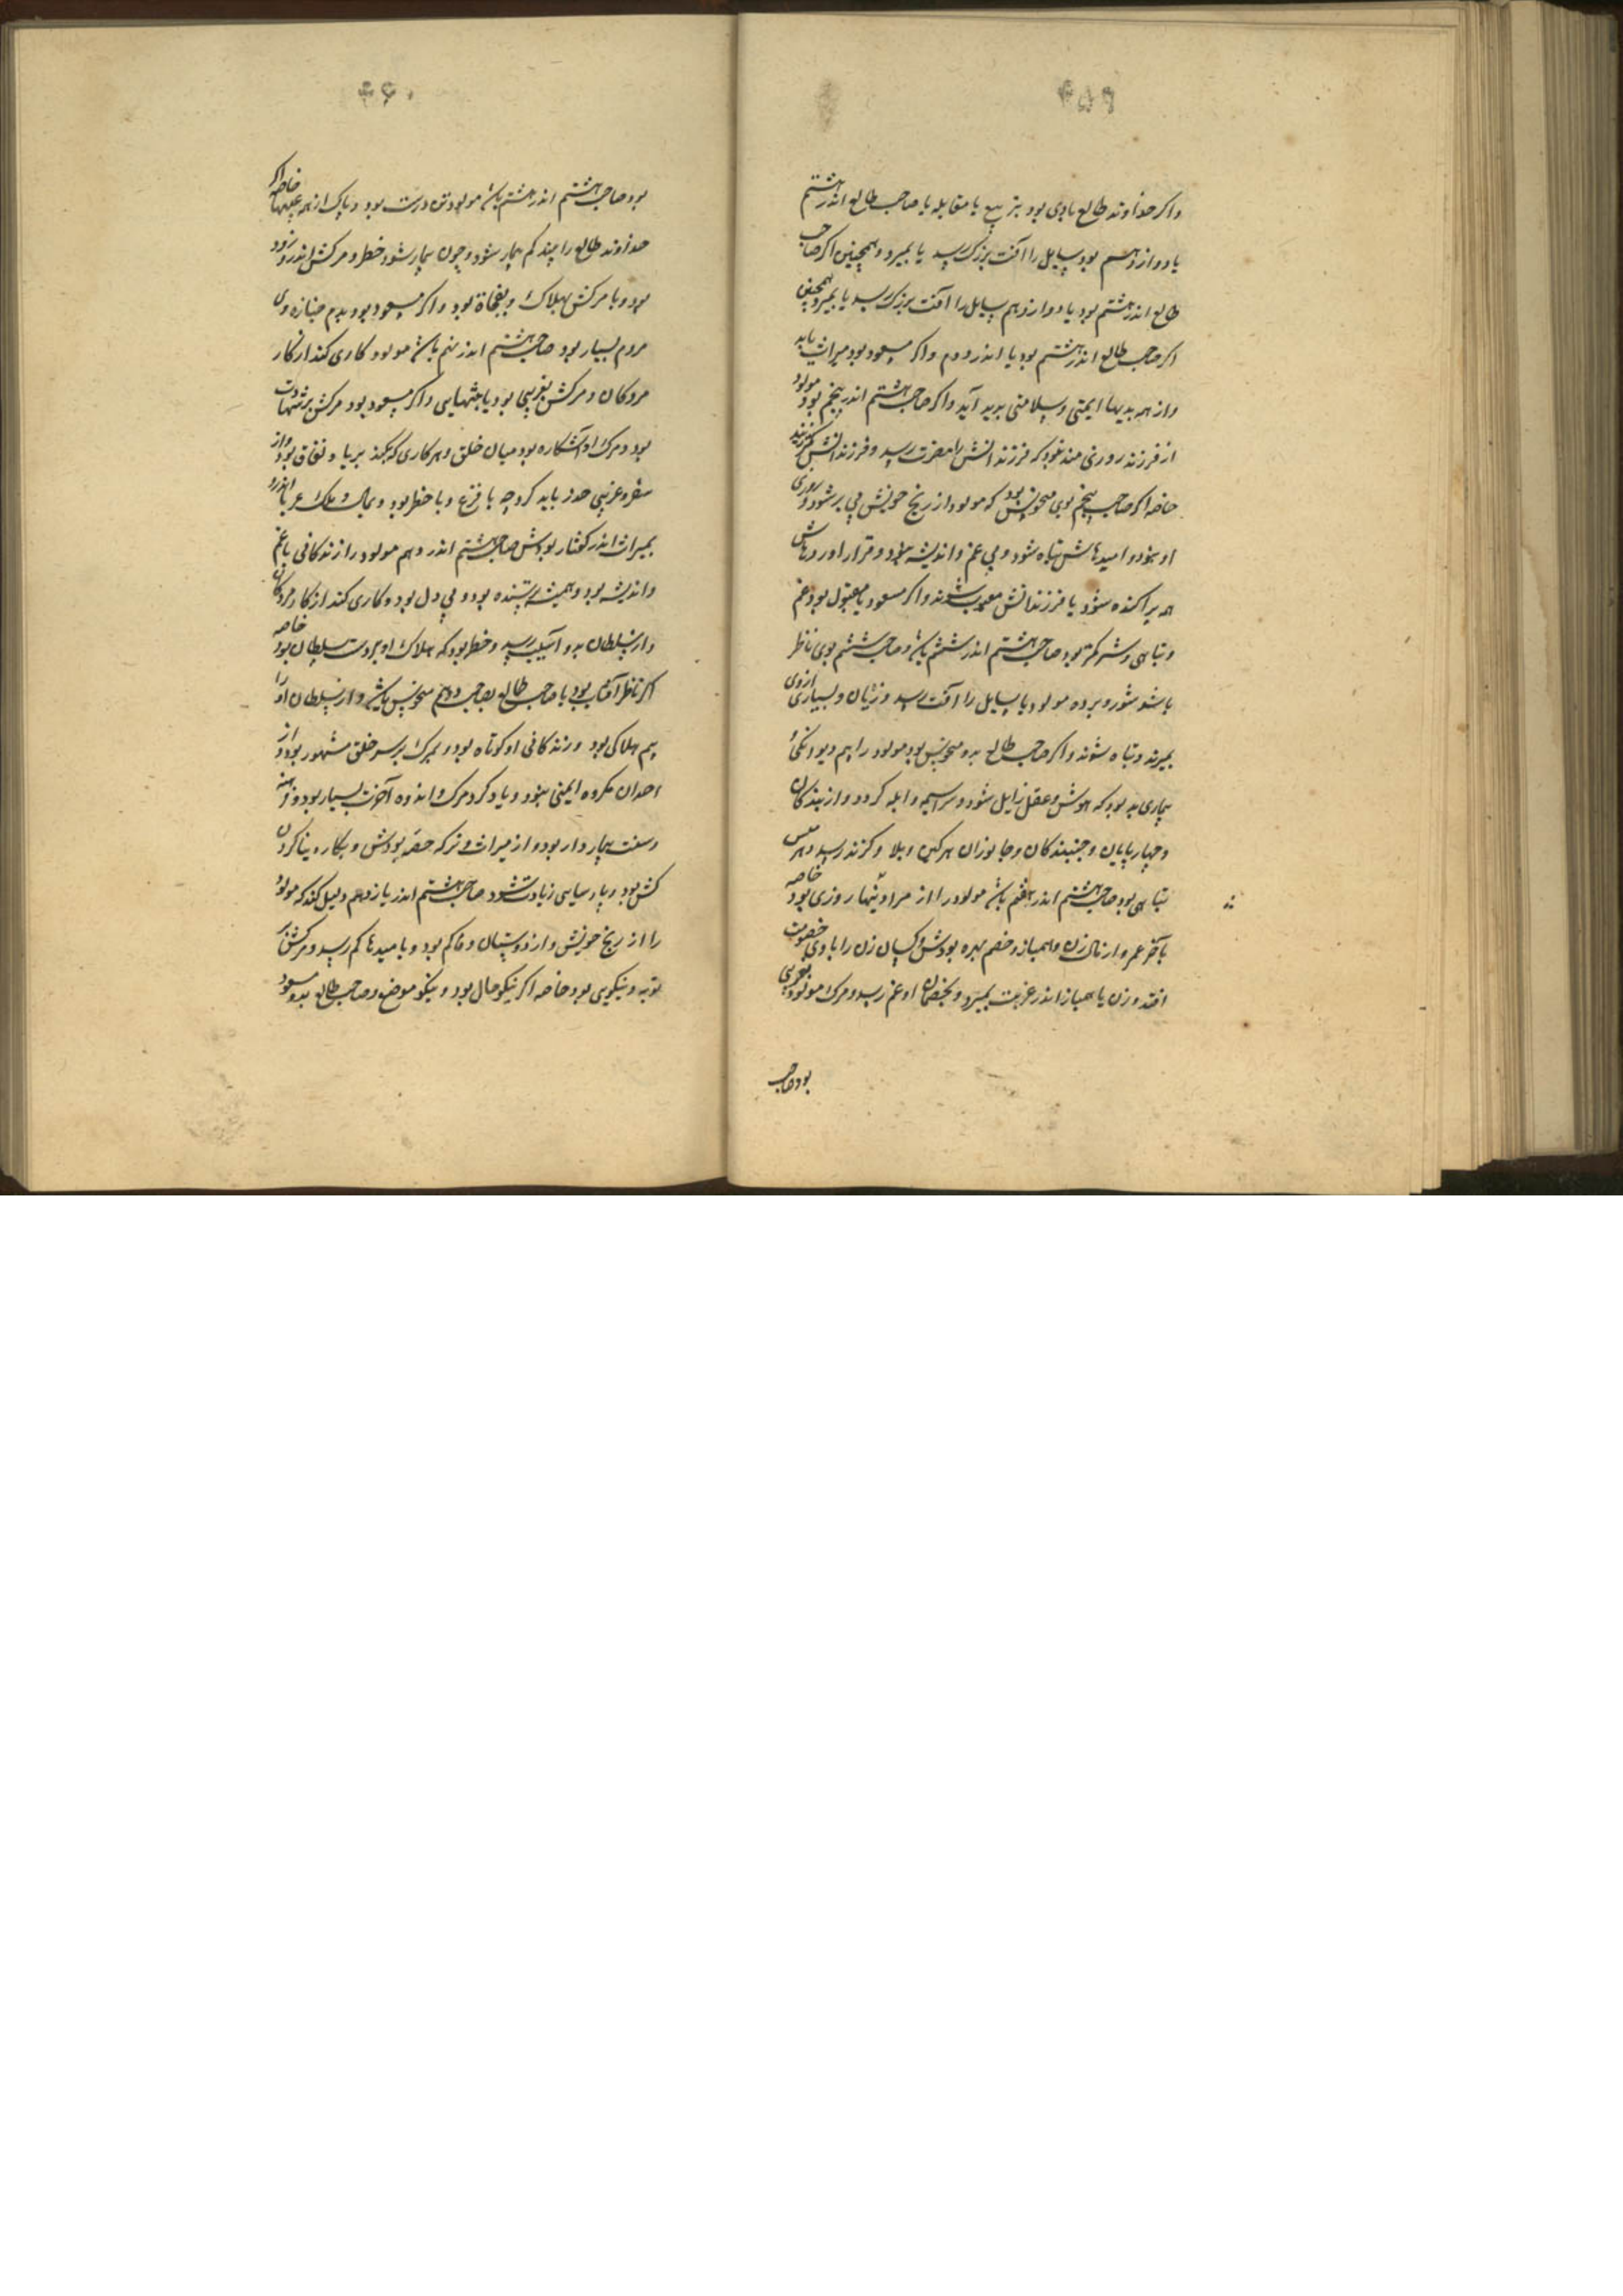 ۴۵۹
واکر خداوند طالع باوی بود بتربیع یا مقابله یا صاحب طالع اندر هشتم
یا دوازدهم بود سایل را آفت بزرک رسد یا بمیرد و همچنین اکر صاحب
طالع اندر هشتم بود یا دوازدهم سایل را آفت بزرک رسد یا بمیرد و همچنین
اکر صاحب طالع اندر هشتم بود یا اندر دوم واکر مسعود بود میراث یابد
واز همه بدیها ایمنی وسلامتی بدید آید واکر صاحب هشتم اندر پنجم بود مولود
از فرزند روزی مند نبود که فرزندانش را مضرت رسد و فرزندانش کم زیند
خاصه اکر صاحب پنجم بوی منحوس بود که مولود از رنج خویش بی بر شود و روزی
او نبود و امیدهاش تباه شود و بی غم و اندیشه نبود و قرار او ردهاش
همه پراکنده شود یا فرزندانش معیوب شوند واکر مسعود یا مقبول بود غم
وتباهی و شر کمتر بود صاحب هشتم اندر ششم باشد وصاحب ششم بوی ناظر
باشد شور و برده مولود یا سایل را آفت رسد وزیان و بسیاری ازوی
بمیرند وتباه شوند واکر صاحب طالع بدو منحوس بود مولود را بیم دیوانکی
بیماری بد بود که هوش وعقل زایل شود وسراسیمه وابله کردد واز بندکان
وچهارپایان وجنبندکان وجانوران سرکین وبلا وکزند رسد وهر کس
تباهی بود صاحب هشتم اندر هفتم باشد مولود را از مراد تنها روزی بود خاصه
بآخر عمر واز مال زن وهمباز وخصم بهره بودش وکسان زن را باوی خصومت
افتد وزن یا همباز اندر غربت بمیرد وبخصمان او غم رسد ومرک مولود بغریبی
بود صاحب
۴۶۰
بود صاحب هشتم اندر هشتم باشد مولود تن درست بود وپاک از همه عیبها خاصه اکر
خداوند طالع را بیند کم بیمار شود وچون بیمار شود خطر ومرکش اندر زود
بود ویا مرکش بهلاک وبفجاة بود واکر مسعود بود بدم جنازه وی
مردم بسیار بود صاحب هشتم اندر نهم باشد مولود کاری کند از کار
مردکان ومرکش بغریبی بود یا بتنهایی واکر مسعود بود مرکش بر شهادت
بود ومرک او آشکاره بود میان خلق وهر کاری که بکند بریا ونفاق بود واز
سفر وغریبی حذر باید کرد چه با فزع وبا خطر بود وبمال وملک عربا اندر
بمیراث اندر کفتار بودش صاحب هشتم اندر دهم مولود را زندکانی باغم
واندیشه بود وهمیشه ترسنده بود وبی دل بود وکاری کند از کار مردکان
واز سلطان بدو آسیب رسد وخطر بود که هلاک او بر دست سلطان بود خاصه
اکر ناظر آفتاب بود یا صاحب طالع بصاحب دوم منحوس باشد واز سلطان او را
بیم هلاکی بود وزندکانی او کوتاه بود وبمرک بر سر خلق مشهور بود واز
احدان مکروه ایمنی نبود ویاد کرد مرک واندوه آخرت بسیار بود
وسنت بیمار دار بود واز میراث وترکه حصه بودش وبکار
کش بود وپارسایی زیادت شود صاحب هشتم اندر یازدهم دلیل کند که مولود
را از رنج خویش واز دوستان وفا کم بود وبامیدها کم رسد ومرکش بر
توبه ونیکویی بود خاصه اکر نیکوحال بود ونیکو موضع وصاحب طالع بدو مسعود